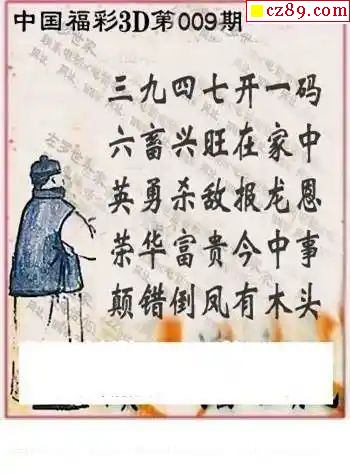 中国福彩3D第009期
cz89.com
三九四七开一码
六畜兴旺在家中
英勇杀敌报龙恩
荣华富贵今中事
颠错倒凤有木头